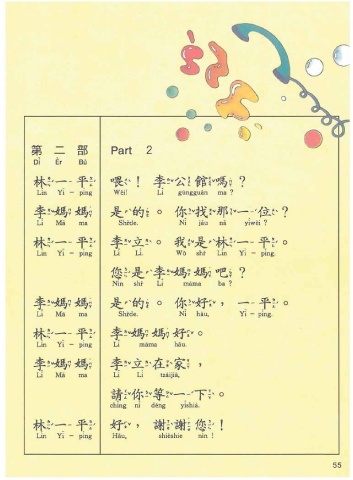 第二部 Part 2
Dì Èr Bù
林一平 喂！李公館嗎？
Lín Yī-píng Wèi! Lǐ gūngguǎn ma?
李媽媽 是的。你找那一位？
Lǐ Mā ma Shìde. Nǐ jǎu nǎ yíwèi?
林一平 李立。我是林一平。
Lín Yī-píng Lǐ Lì. Wǒ shì Lín Yī-píng.
您是李媽媽吧？
Nín shì Lǐ māma ba?
李媽媽 是的。你好，一平。
Lǐ Mā ma Shìde. Nǐ hǎu, Yī-píng.
林一平 李媽媽好。
Lín Yī-píng Lǐ māma hǎu.
李媽媽 李立在家，
Lǐ Mā ma Lǐ Lì tzàijiā,
請你等一下。
chǐng nǐ děng yíshià.
林一平 好，謝謝您！
Lín Yī-píng Hǎu, shièshie nín!
55